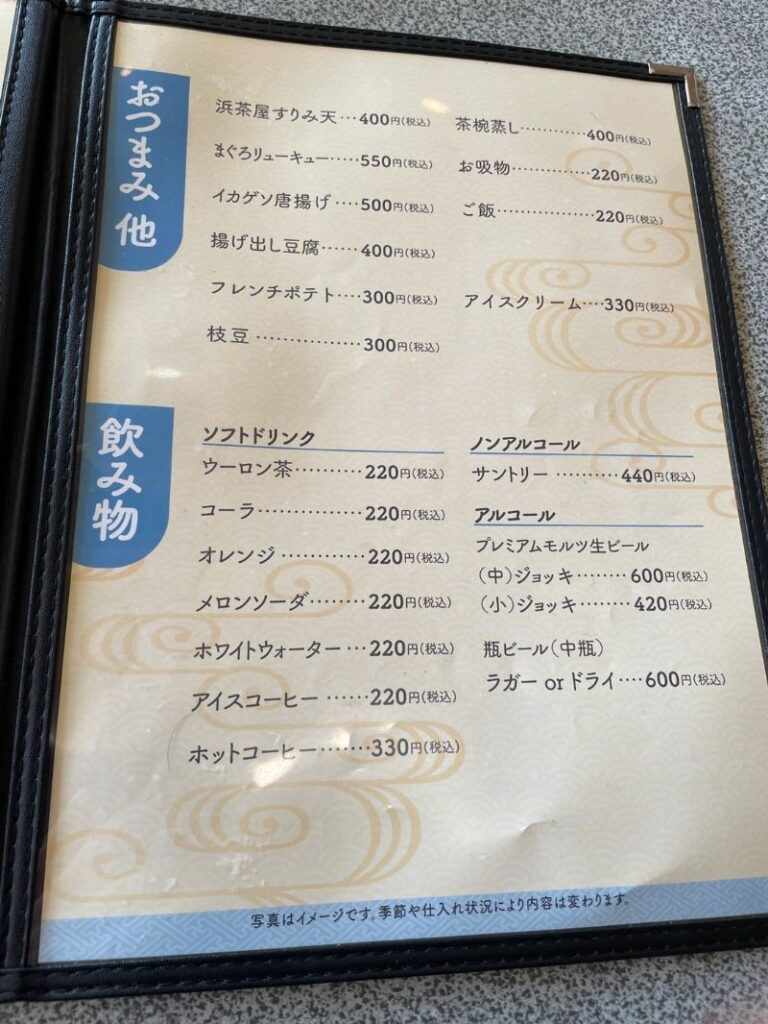 おつまみ 他
浜茶屋すりみ天…400円(税込)
まぐろリューキュー……550円(税込)
イカゲソ唐揚げ……500円(税込)
揚げ出し豆腐……400円(税込)
フレンチポテト……300円(税込)
枝豆………………300円(税込)
茶椀蒸し…………400円(税込)
お吸物……………220円(税込)
ご飯………………220円(税込)
アイスクリーム……330円(税込)
飲み物
ソフトドリンク
ウーロン茶…………220円(税込)
コーラ……………220円(税込)
オレンジ…………220円(税込)
メロンソーダ………220円(税込)
ホワイトウォーター…220円(税込)
アイスコーヒー……220円(税込)
ホットコーヒー……330円(税込)
ノンアルコール
サントリー…………440円(税込)
アルコール
プレミアムモルツ生ビール
(中)ジョッキ………600円(税込)
(小)ジョッキ………420円(税込)
瓶ビール(中瓶)
ラガー or ドライ……600円(税込)
写真はイメージです。季節や仕入れ状況により内容は変わります。